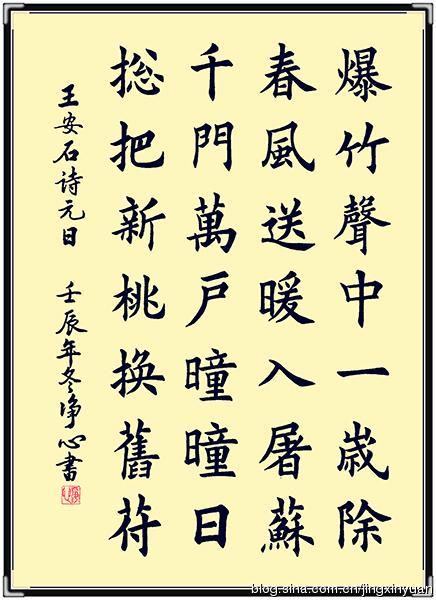 爆竹聲中一歳除
春風送暖入屠蘇
千門萬戸曈曈日
搃把新桃換舊符
王安石诗元日 壬辰年冬净心書
blog.sina.com.cn/jingxinyuan